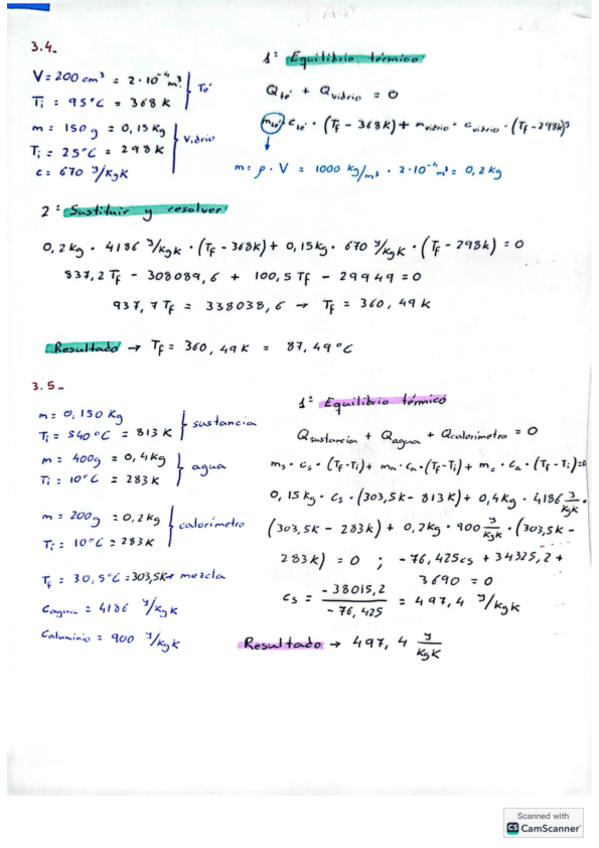 3.4-
V = 200 cm³ = 2·10⁻⁴ m³
Ti = 95°C = 368 K
Té
m = 150 g = 0,15 Kg
Ti = 25°C = 298 K
c = 670 J/KgK
Vidrio
1º Equilibrio térmico
Qté + Qvidrio = 0
mté · cté · (Tf - 368K) + mvidrio · cvidrio · (Tf - 298K)
m = ρ · V = 1000 kg/m³ · 2·10⁻⁴ m³ = 0,2 kg
2º Sustituir y resolver
0,2 kg · 4186 J/KgK · (Tf - 368K) + 0,15 kg · 670 J/KgK · (Tf - 298K) = 0
837,2 Tf - 308089,6 + 100,5 Tf - 29949 = 0
937,7 Tf = 338038,6 → Tf = 360,49 K
Resultado → Tf = 360,49 K = 87,49 °C
3.5-
m = 0,150 Kg
Ti = 540°C = 813 K
sustancia
m = 400g = 0,4 Kg
Ti = 10°C = 283 K
agua
m = 200g = 0,2 kg
Ti = 10°C = 283 K
calorímetro
Tf = 30,5°C = 303,5K → mezcla
Cagua = 4186 J/KgK
Caluminio = 900 J/KgK
1º Equilibrio térmico
Qsustancia + Qagua + Qcalorímetro = 0
ms · cs · (Tf - Ti) + ma · ca · (Tf - Ti) + mc · ca · (Tf - Ti) = 0
0,15 Kg · cs · (303,5K - 813 K) + 0,4 Kg · 4186 J/KgK ·
(303,5K - 283 K) + 0,2 Kg · 900 J/KgK · (303,5K -
283 K) = 0 ; -76,425cs + 34325,2 +
3690 = 0
cs = -38015,2 / -76,425 = 497,4 J/KgK
Resultado → 497,4 J/KgK
Scanned with
CS CamScanner